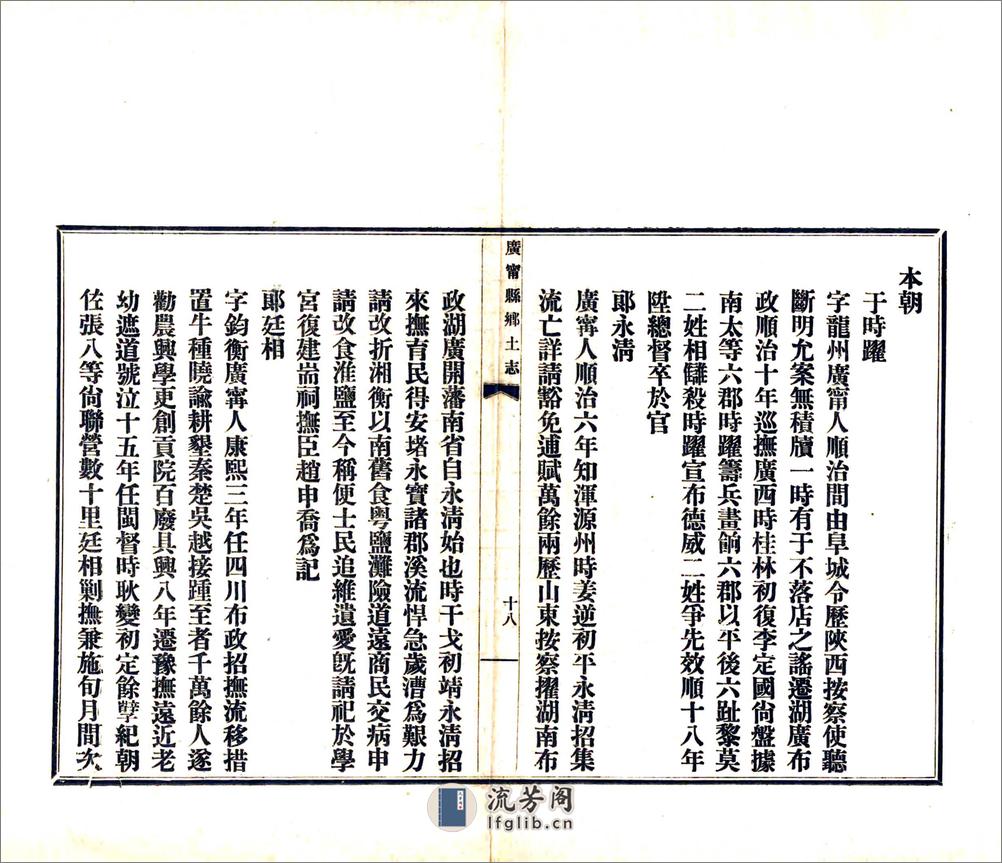 本朝
于時躍
字龍州廣甯人順治間由阜城令歷陝西按察使聽
斷明允案無積牘一時有于不落店之謠遷湖廣布
政順治十年巡撫廣西時桂林初復李定國尙盤據
南太等六郡時躍籌兵畫餉六郡以平後六趾黎莫
二姓相讎殺時躍宣布德威二姓爭先效順十八年
陞總督卒於官
郎永淸
廣甯人順治六年知渾源州時姜逆初平永淸招集
流亡詳請豁免逋賦萬餘兩歷山東按察擢湖南布
廣甯縣鄉土志
十八
政湖廣開藩南省自永淸始也時干戈初靖永淸招
來撫育民得安堵永寶諸郡溪流悍急歲漕爲艱力
請改折湘衡以南舊食粵鹽灘險道遠商民交病申
請改食淮鹽至今稱便士民追維遺愛旣請祀於學
宮復建耑祠撫臣趙申喬爲記
郎廷相
字鈞衡廣甯人康熙三年任四川布政招撫流移措
置牛種曉諭耕墾秦楚吳越接踵至者千萬餘人遂
勸農興學吏創貢院百廢具興八年遷豫撫遠近老
幼遮道號泣十五年任閩督時耿變初定餘孽紀朝
佐張八等尙聯營數十里廷相剿撫兼施旬月間次
流芳阁
lfglib.cn